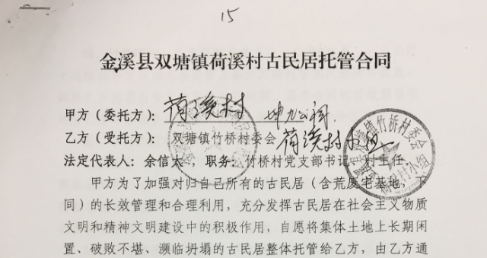 15
金溪县双塘镇荷溪村古民居托管合同
甲方（委托方）：荷溪村
乙方（受托方）：双塘镇竹桥村委会 荷溪村小组
法定代表人：余信太 ，职务：竹桥村党支部书记、村主任
甲方为了加强对归自己所有的古民居（含荒废宅基地，下
同）的长效管理和合理利用，充分发挥古民居在社会主义物质
文明和精神文明建设中的积极作用，自愿将集体土地上长期闲
置、破败不堪、濒临坍塌的古民居整体托管给乙方，由乙方通